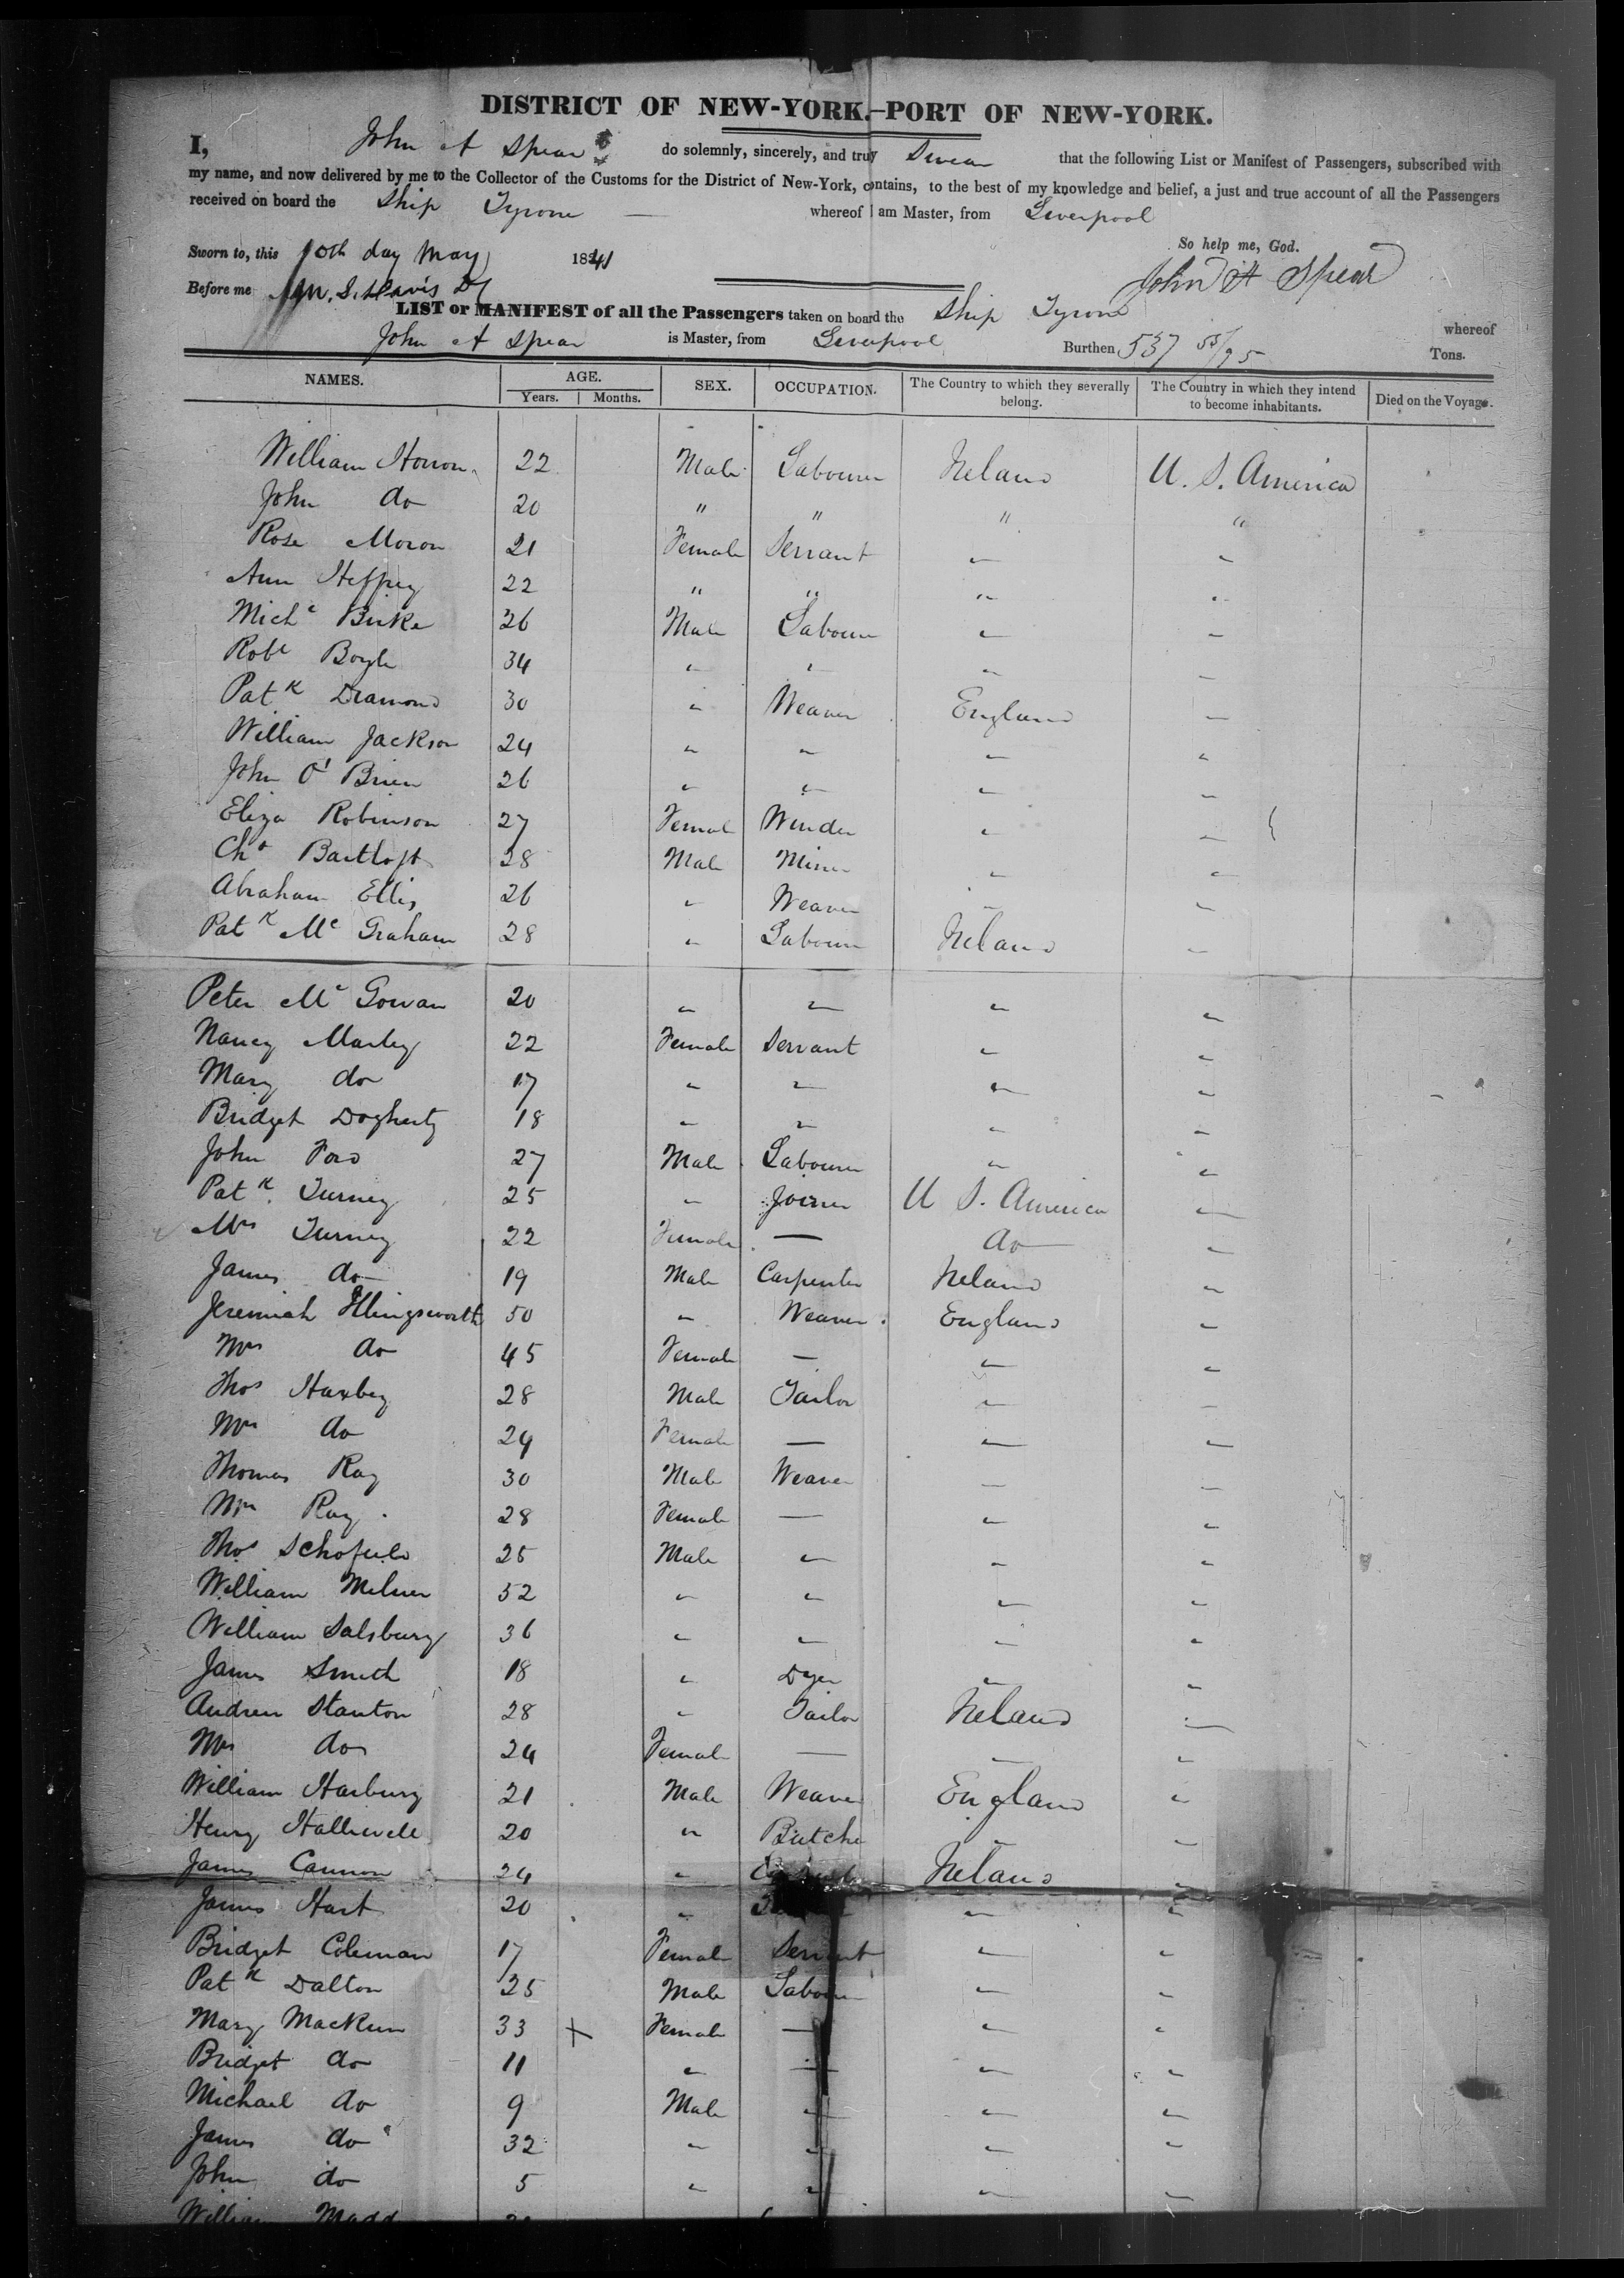 DISTRICT OF NEW-YORK.—PORT OF NEW-YORK.
I, John A Spear do solemnly, sincerely, and truly Swear that the following List or Manifest of Passengers, subscribed with
my name, and now delivered by me to the Collector of the Customs for the District of New-York, contains, to the best of my knowledge and belief, a just and true account of all the Passengers
received on board the Ship Tyrone — whereof I am Master, from Liverpool
So help me, God.
Sworn to, this 10th day May 1841
John A Spear
Before me S. Davis
LIST or MANIFEST of all the Passengers taken on board the Ship Tyrone whereof
John A Spear is Master, from Liverpool Burthen 537 55/95 Tons.
NAMES. AGE. SEX. OCCUPATION. The Country to which they severally belong. The Country in which they intend to become inhabitants. Died on the Voyage.
Years. Months.
William Horron 22 Male Labourer Ireland U. S. America
John do 20 " " " "
Rose Moron 21 Female Servant " "
Ann Heffrey 22 " " " "
Michl Burke 26 Male Labourer " "
Robt Boyle 34 " " " "
Patk Diamond 30 " Weaver England "
William Jackson 24 " " " "
John O'Brien 26 " " " "
Eliza Robinson 27 Female Winder " "
Chs Bartloft 28 Male Miner " "
Abraham Ellis 26 " Weaver " "
Patk Mc Graham 28 " Labourer Ireland "
Peter Mc Gowan 20 " " " "
Nancy Marley 22 Female Servant " "
Mary do 17 " " " "
Bridget Dogherty 18 " " " "
John Ford 27 Male Labourer " "
Patk Turney 25 " Joiner U S. America "
Mrs Turney 22 Female — do "
James do 19 Male Carpenter Ireland "
Jeremiah Illingsworth 50 " Weaver England "
Mrs do 45 Female — " "
Thos Haxbey 28 Male Tailor " "
Mrs do 24 Female — " "
Thomas Ray 30 Male Weaver " "
Mrs Ray 28 Female — " "
Thos Schofield 25 Male " " "
William Milner 32 " " " "
William Salsbury 36 " " " "
James Smith 18 " Dyer " "
Andrew Stanton 28 " Tailor Ireland "
Mrs do 24 Female — " "
William Harbury 21 Male Weaver England "
Henry Halliwell 20 " Butcher " "
James Cannon 24 " Ireland "
James Hart 20 " " "
Bridget Coleman 17 Female Servant " "
Patk Dalton 25 Male Labourer " "
Mary Mackun 33 + Female — " "
Bridget do 11 " — " "
Michael do 9 Male " " "
James do 32 " " " "
John do 5 " " " "
William